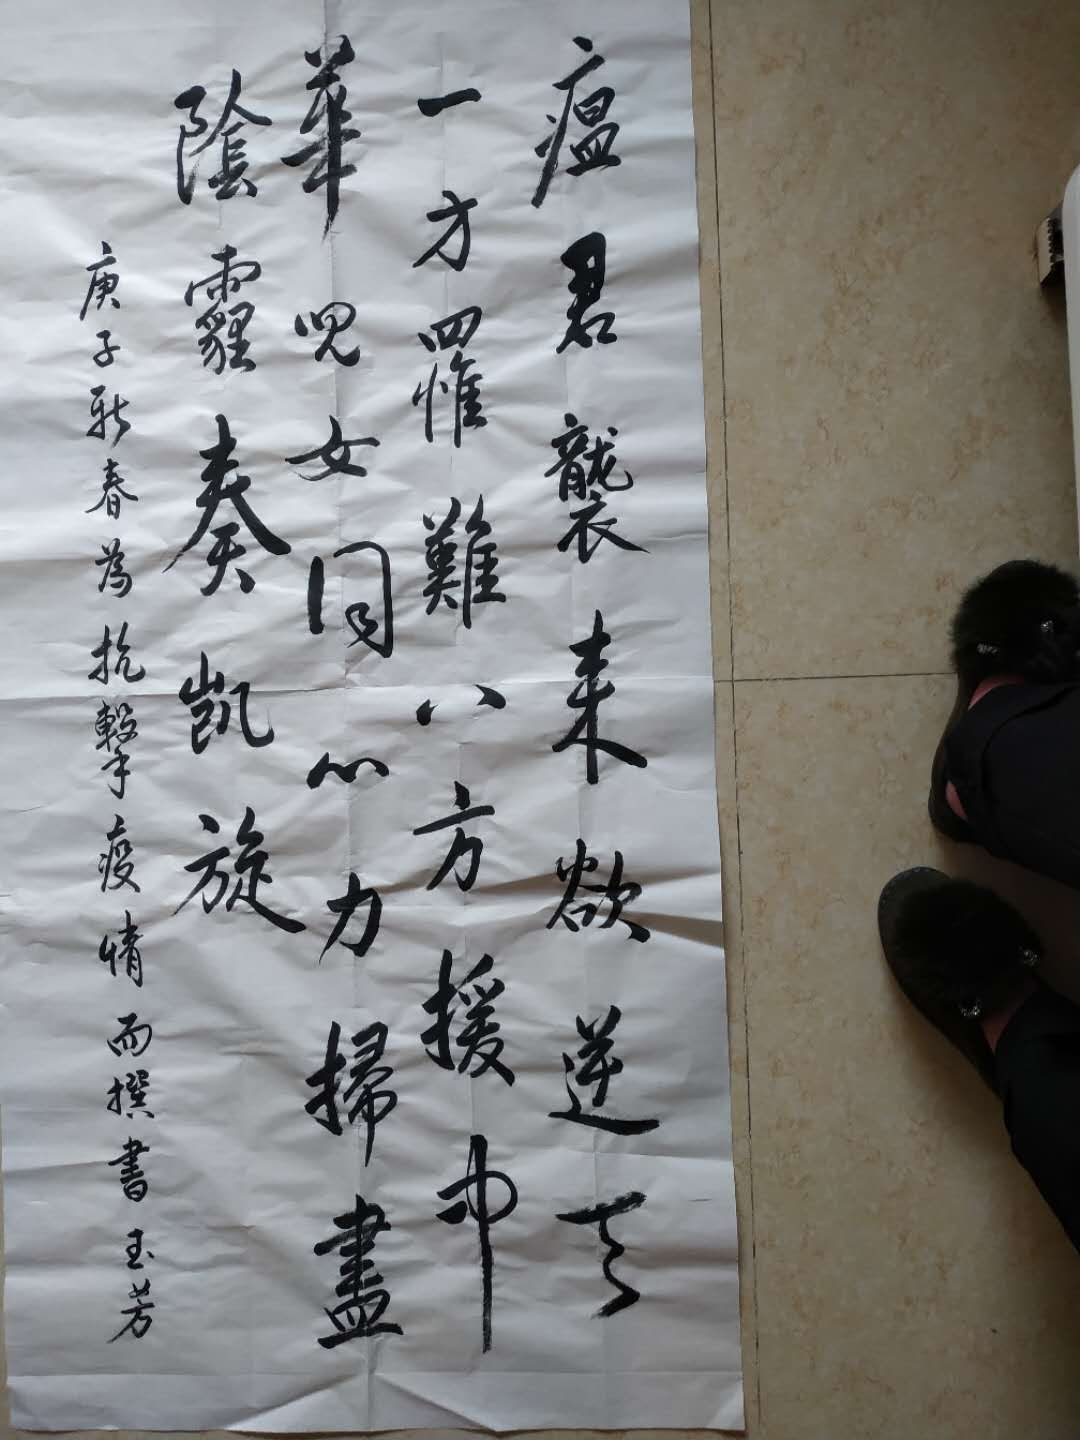 瘟君襲来欲逆天
一方罹難八方援中
華児女同心力掃盡
陰霾奏凱旋
庚子新春為抗擊疫情而撰書玉芳